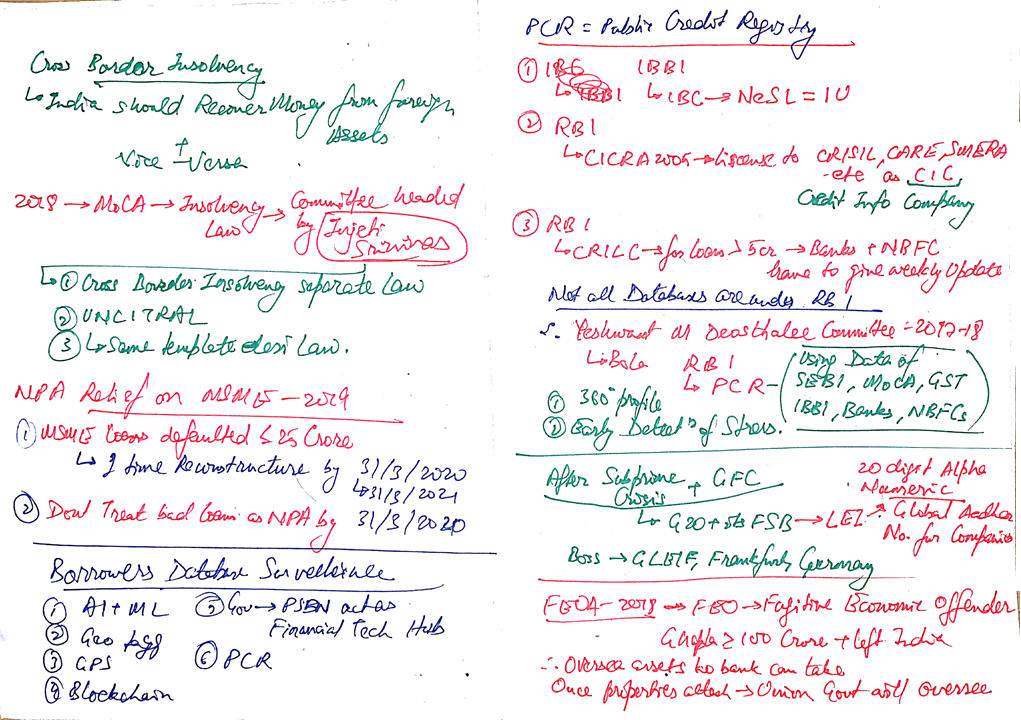 Cross Border Insolvency
↳ India should Recover Money from foreign Assets
+
Vice – Versa
2018 → MoCA → Insolvency Law → Committee headed by Injeti Srinivas
↳ ① Cross Border Insolvency separate Law
② UNCITRAL
③ ↳ Same template desi Law.
NPA Relief on MSME – 2019
① MSME loans defaulted ≤ 25 Crore
↳ 1 time Reconstructure by 31/3/2020
↳ 31/3/2021
② Dont Treat bad loans as NPA by 31/3/2020
Borrowers Database Surveillance
① AI + ML
② Geo tagg
③ GPS
④ Blockchain
⑤ Gov → PSBN act as
Financial Tech Hub
⑥ PCR
PCR = Public Credit Registry
① IBBI
↳ IBC → NeSL = IU
② RBI
↳ CICRA 2005 → license to CRISIL, CARE, SMERA
etc as CIC
Credit Info Company
③ RBI
↳ CRILC → for loan > 5cr → Banks + NBFC
have to give weekly Update
Not all Databases are under RBI
∴ Yeshwant M Deosthalee Committee – 2017-18
↳ Bola RBI
↳ PCR –
(Using Data of
SEBI, MoCA, GST
IBBI, Banks, NBFCs)
① 360° profile
② Early Detectⁿ of Stress.
After Subprime Crisis + GFC
↳ G20 + FSB → LEI
20 digit Alpha
Numeric
Global Aadhar
No. for Companies
Boss → GLEIF, Frankfurt, Germany
FEOA – 2018 → FEO → Fugitive Economic Offender
Ghapla ≥ 100 Crore + left India
∴ Oversea assets ko bank can take
Once properties attach → Union Govt will oversee